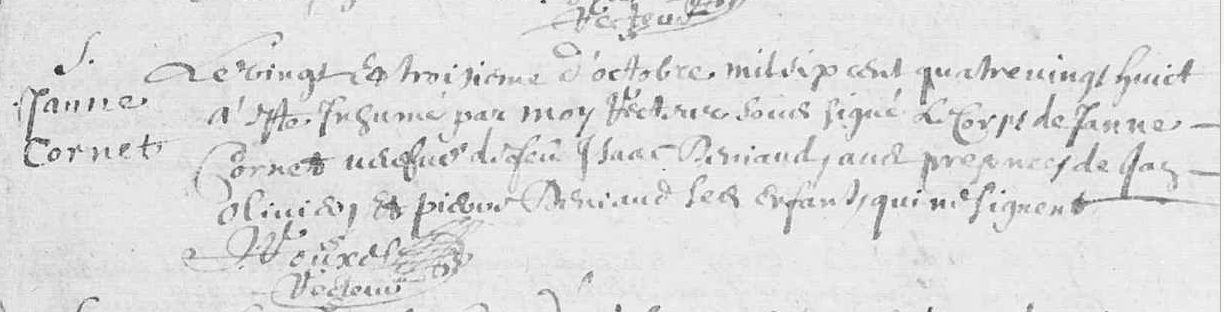 Recteur
S.
Janne
Cornet
Le vingt Et troisieme d'octobre mil sip cent quatrevingt huict
a Esté Inhumé par moy Recteur sous signé Le Corps de Janne
Cornet vefue de feu Isaac Beniaud, aues presences de Jan
olivier, Et pierre Beniaud ses enfants, qui ne signent
Rouxel
Recteur